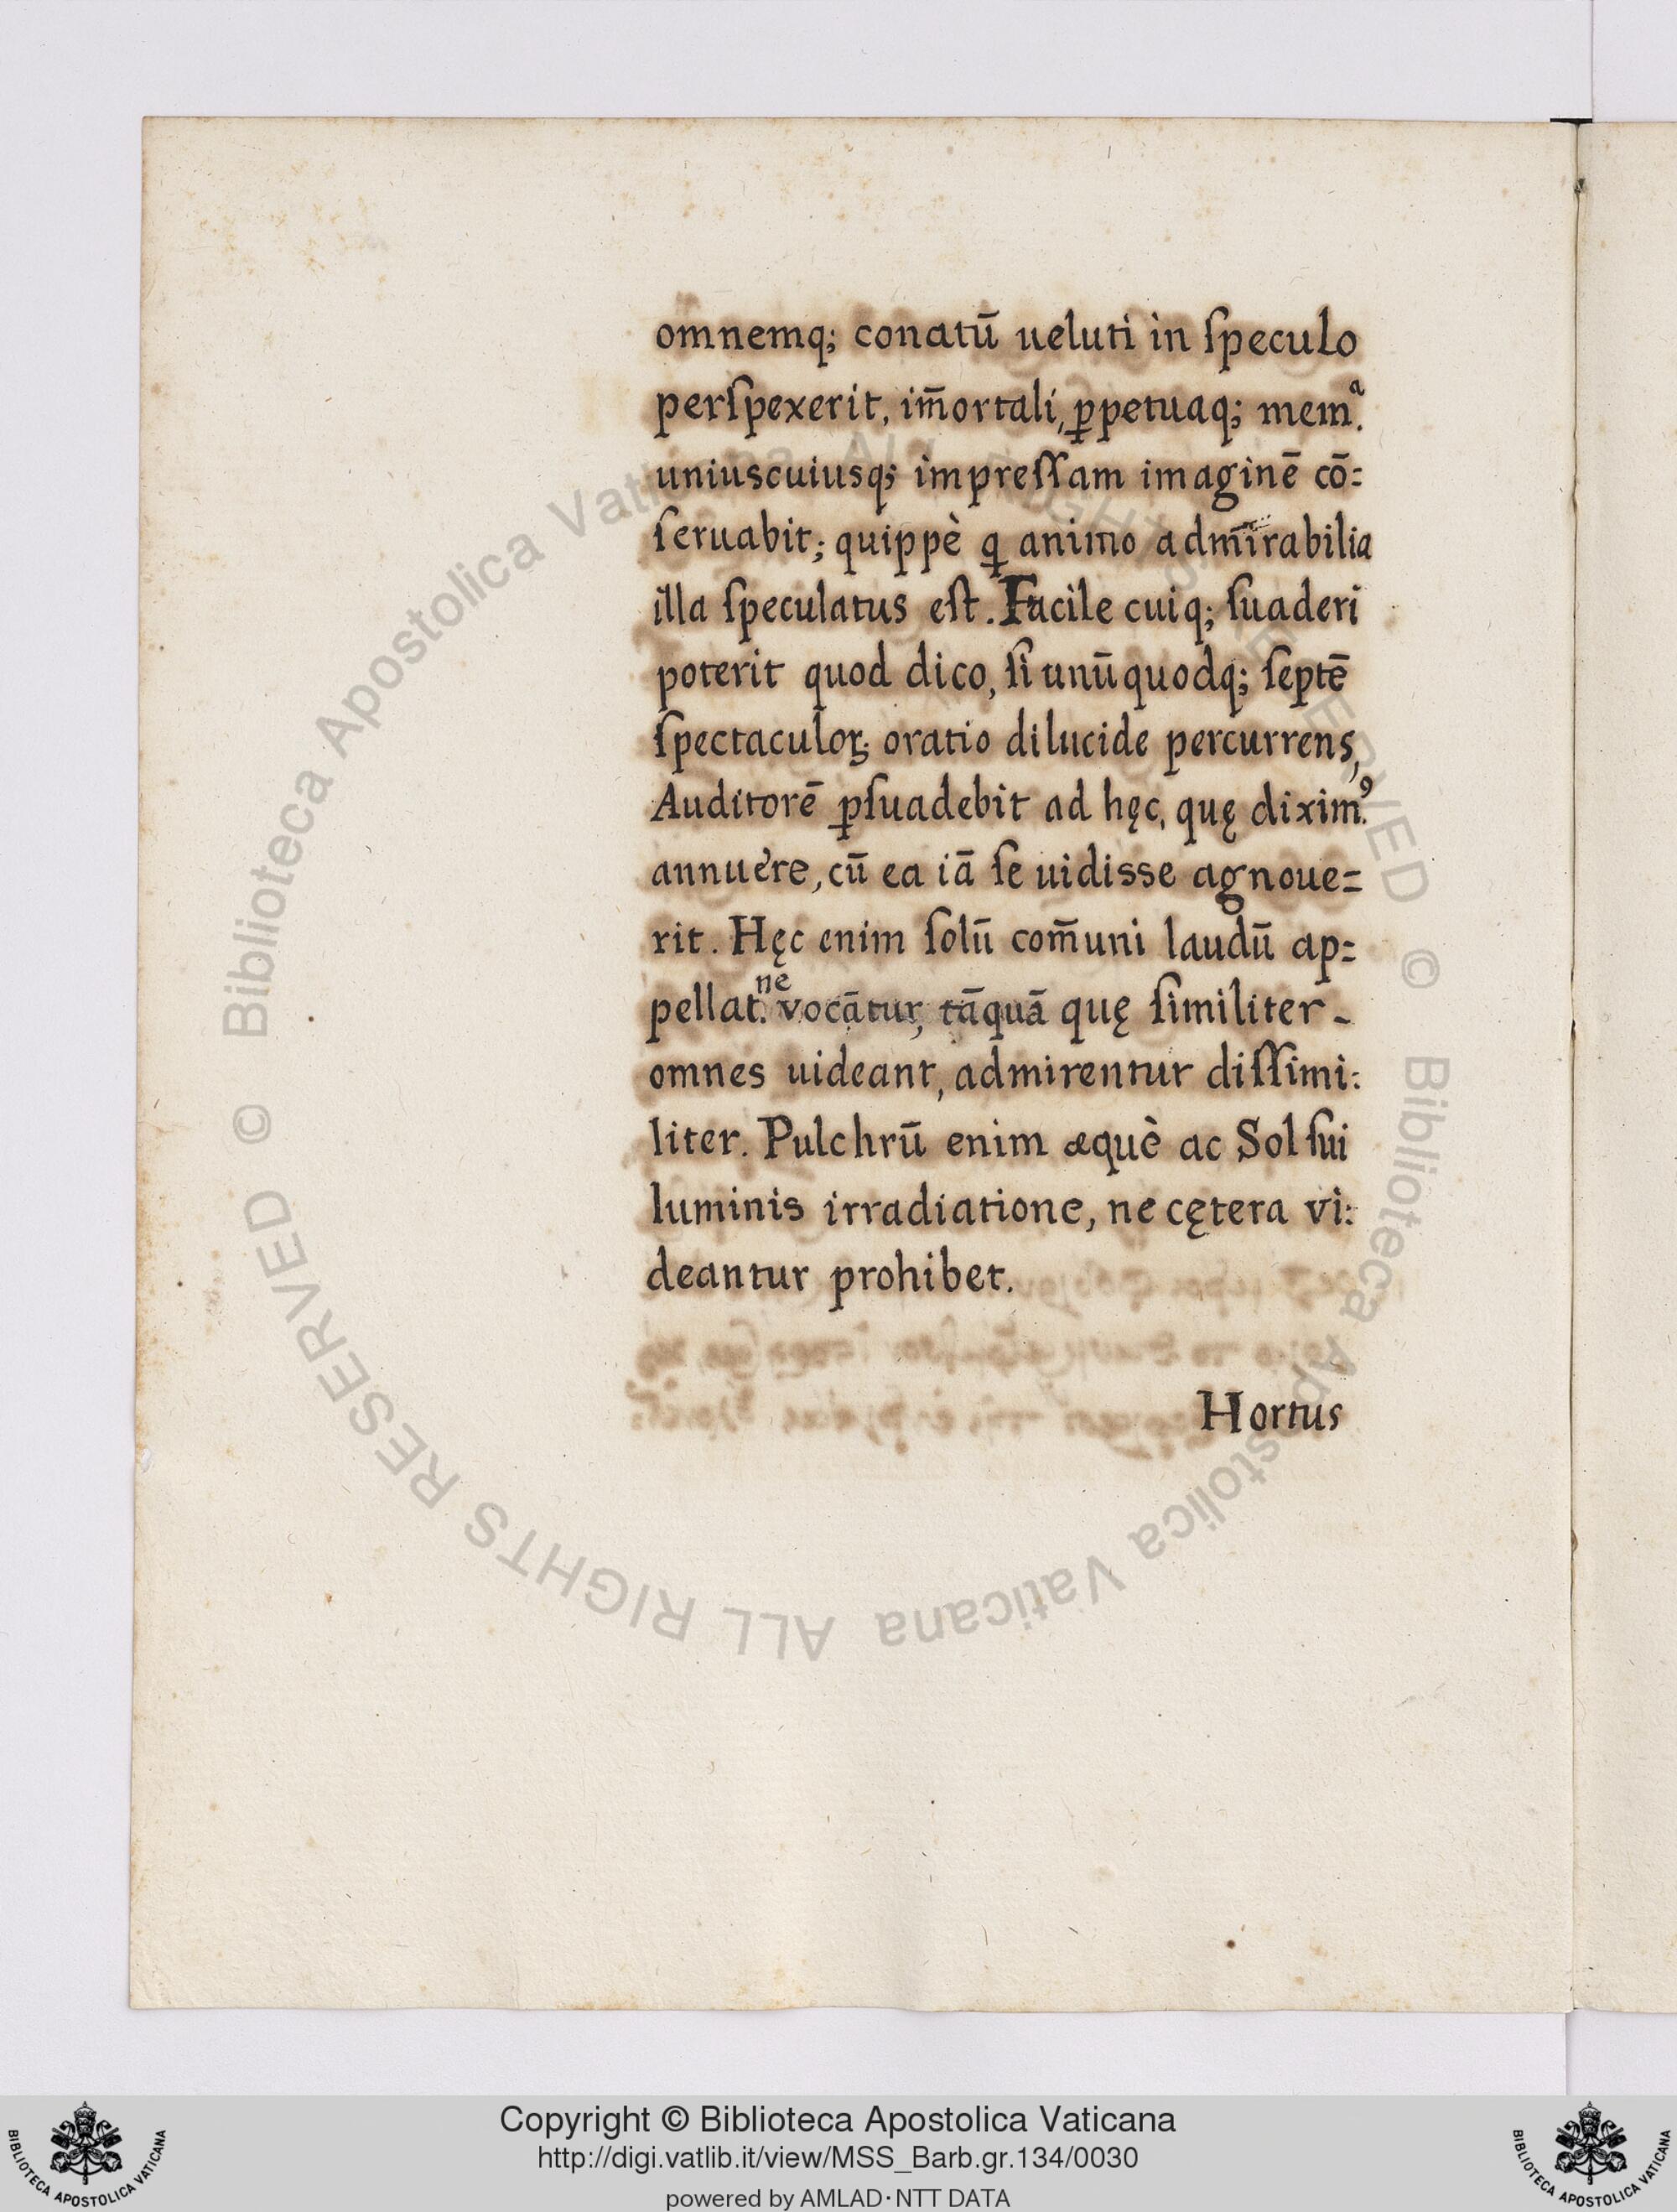 omnemq; conatū ueluti in ſpeculo
perſpexerit, im̄ortali, ꝑpetuaq; mem.ᵃ
uniuscuiusq; impreſſam imaginē cō=
ſeruabit; quippè ꝗ animo admīrabilia
illa ſpeculatus eſt. Facile cuiq; ſuaderi
poterit quod dico, ſi unūquodq; ſeptē
ſpectaculoꝝ oratio dilucide percurrens,
Auditorē ꝑſuadebit ad hęc, quę dixim.⁹
annuere, cū ea iā ſe uidisse agnoue=
rit. Hęc enim ſolū com̄uni laudū ap=
pellat.ⁿᵉ vocātur, tāquā quę ſimiliter-
omnes uideant, admirentur diſſimi:
liter. Pulchrū enim æquè ac Sol ſui
luminis irradiatione, ne cętera vi:
deantur prohibet.
Hortus
© Biblioteca Apostolica Vaticana ALL RIGHTS RESERVED © Biblioteca Apostolica Vaticana ALL RIGHTS RESERVED
BIBLIOTECA APOSTOLICA VATICANA
Copyright © Biblioteca Apostolica Vaticana
http://digi.vatlib.it/view/MSS_Barb.gr.134/0030
powered by AMLAD·NTT DATA
BIBLIOTECA APOSTOLICA VATICANA